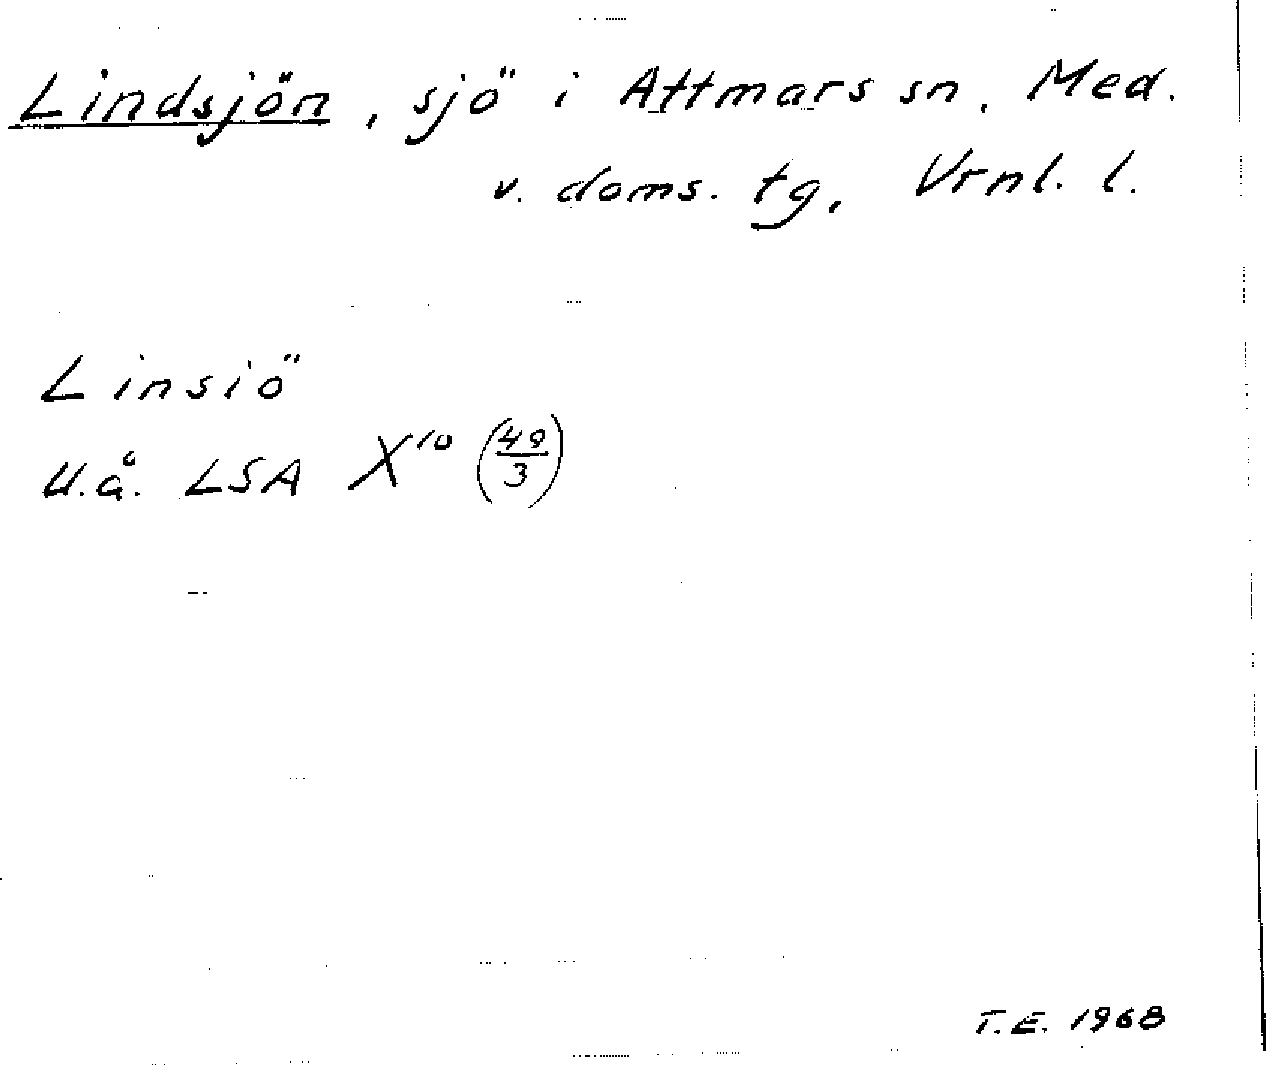 Lindsjön, sjö i Attmars sn, Med.
v. doms. tg, Vrnl. l.
Linsiö
U.å. LSA X¹⁰ (49/3)
T.E. 1968